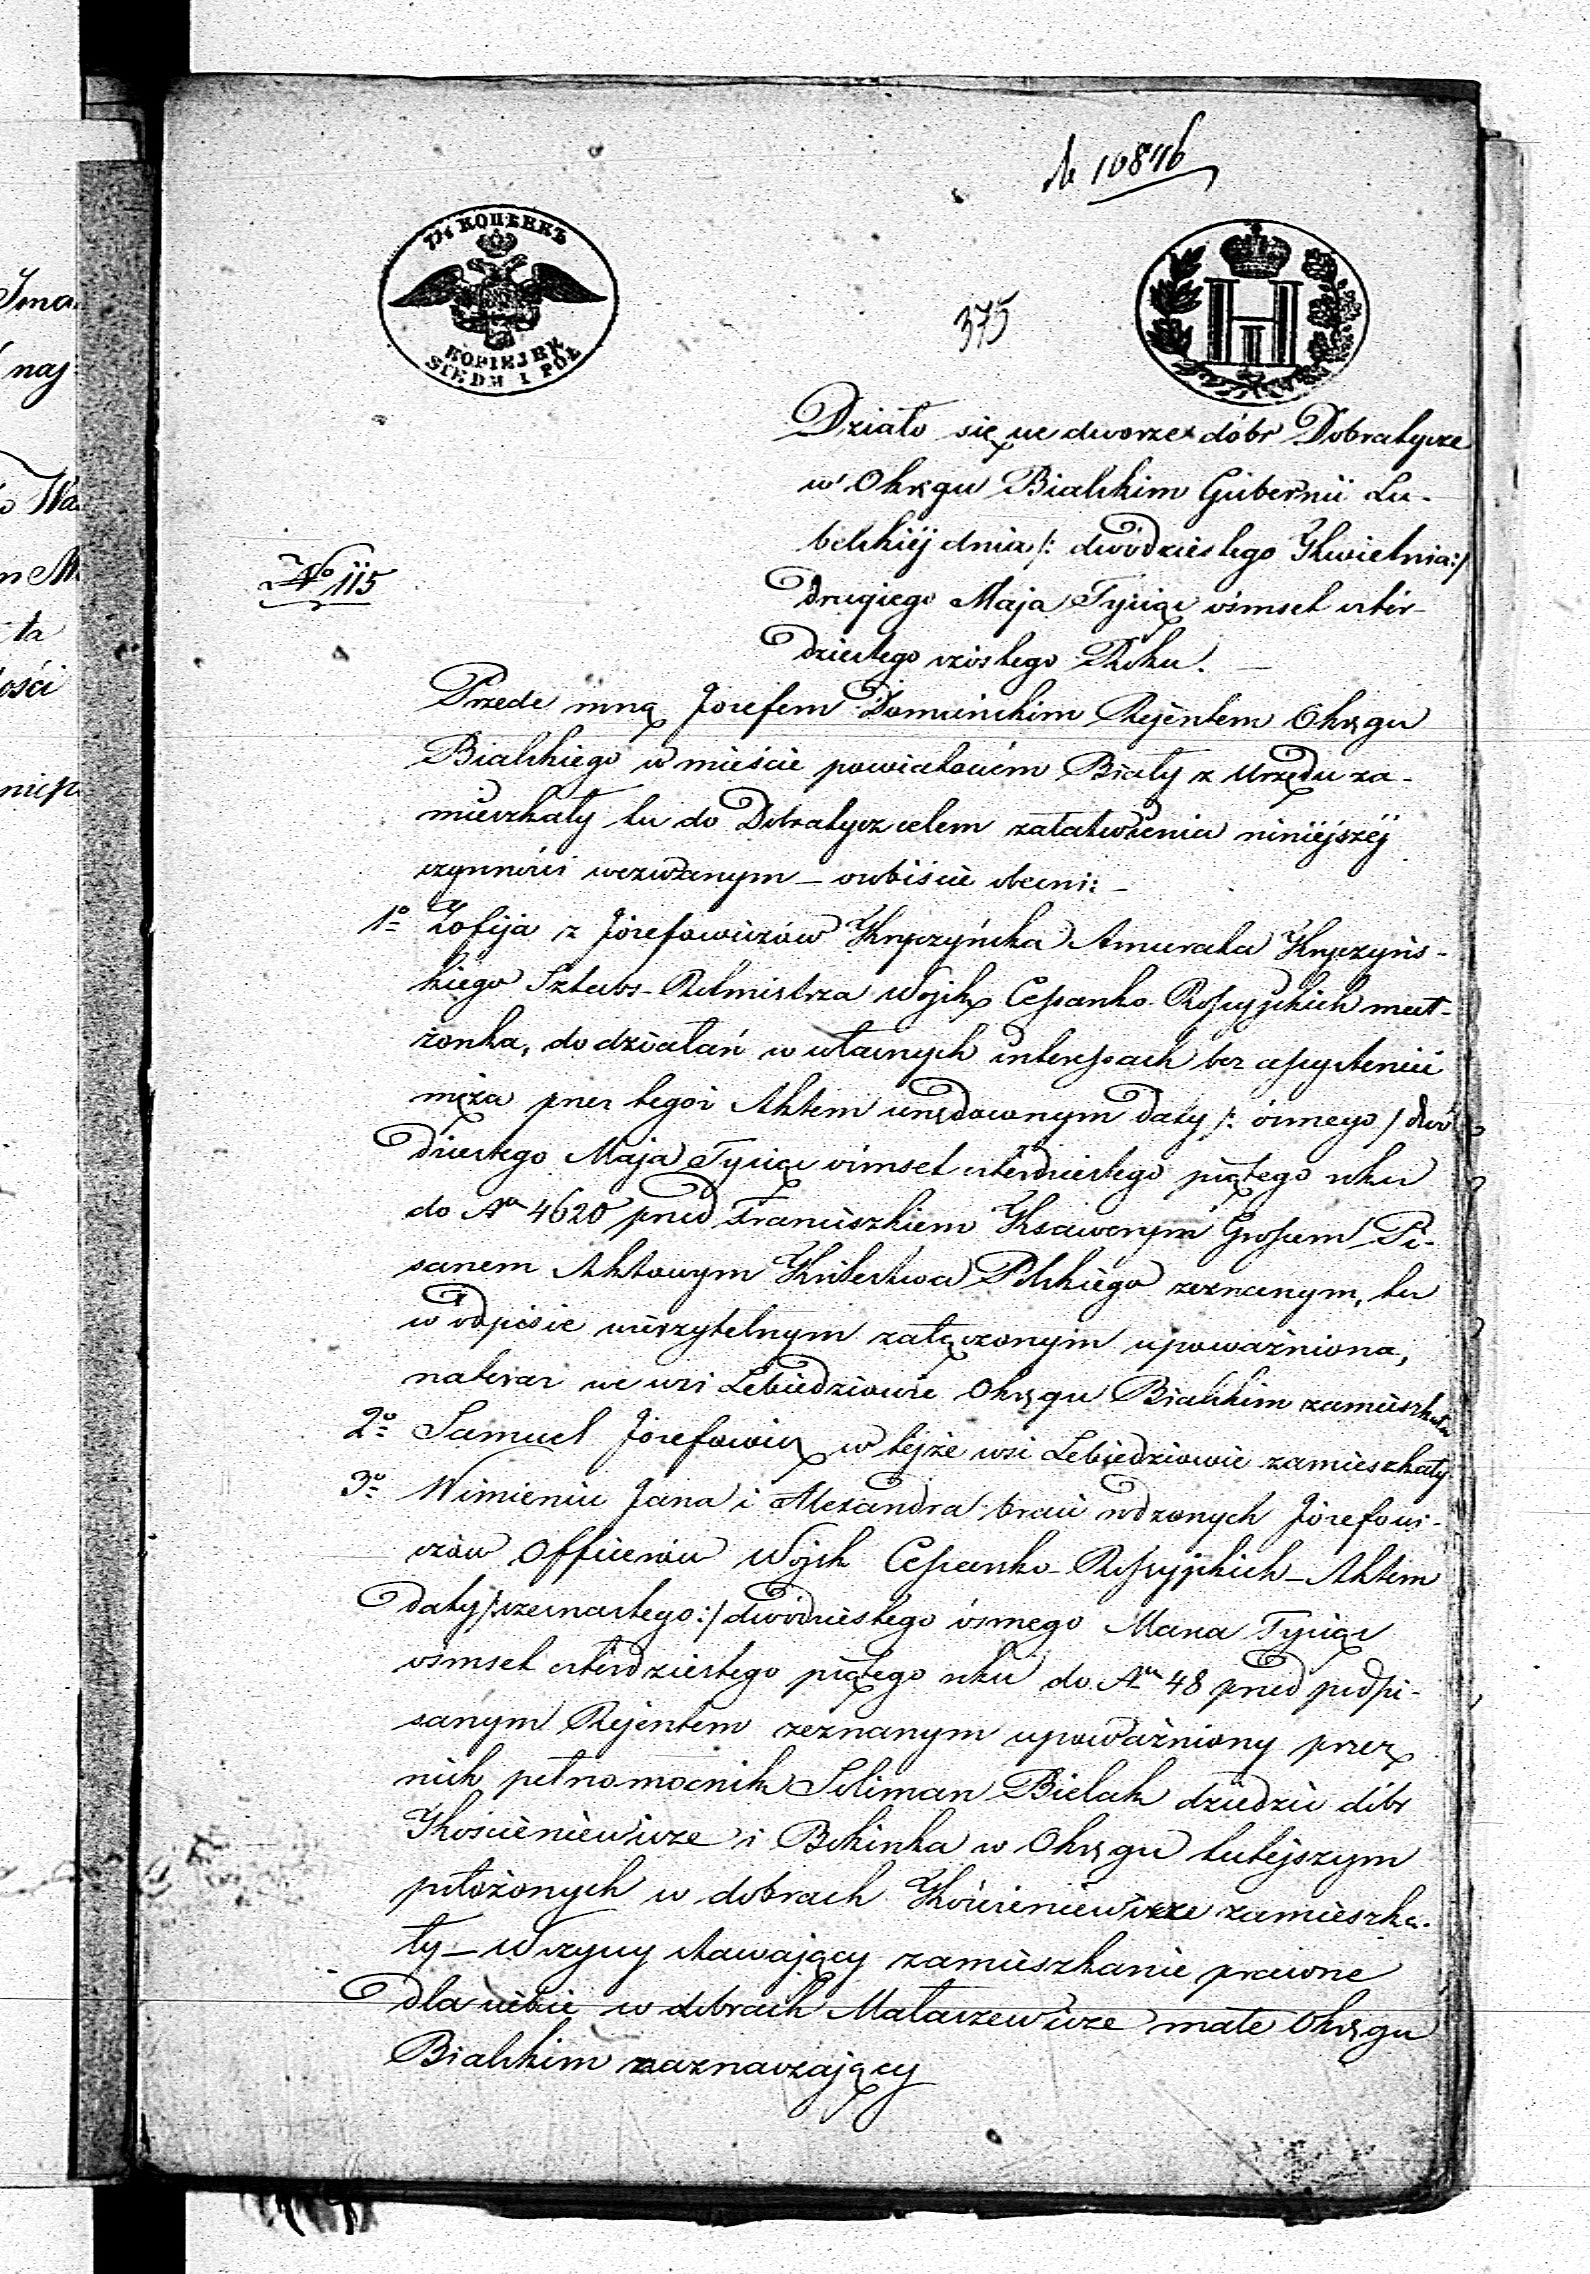 № 10846
7½ КОПѢЕКЪ
KOPIEJEK
SIEDM I PÓŁ
375
Działo się we dworze dóbr Dobratycze
w Okręgu Bialskim Gubernii Lu-
belskiéj dnia /: dwódziestego Kwietnia :/
drugiego Maja Tysiąc ośmset czter-
dziestego szóstego Roku. —
No 115
Przede mną Józefem Domańskim Rejentem Okręgu
Bialskiego w mieście powiatowém Biały z Urzędu za-
mieszkały tu do Dobratycz celem załatwienia niniejszéj
czynności wezwanym — osobiście obecni: —
1o Zofija z Józefowiczów Kryczyńska Amurata Kryczyńs-
kiego Sztabs-Rotmistrza Wojsk Cesarsko-Rossyjskich mał-
żonka, do działań w własnych interessach bez assystencii
męża przez tegoż Aktem urzędownym daty /: ósmego / dwó
dziestego Maja Tysiąc ośmset czterdziestego piątego roku
do Nru 4620 przed Franciszkiem Ksawerym Grossem Pi-
sarzem Aktowym Królestwa Polskiego zeznanym, tu
w odpisie wierzytelnym załączonym upoważniona,
na teraz we wsi Lebiedziowie Okręgu Bialskim zamieszkała
2o Samuel Józefowicz w tejże wsi Lebiedziowie zamieszkały
3o W imieniu Jana i Alexandra braci rodzonych Józefowi-
czów Officerów Wojsk Cesarsko-Rossyjskich — Aktem
daty /: szesnastego :/ dwódziestego ósmego Marca Tysiąc
ośmset czterdziestego piątego roku do Nru 48 przed podpi-
sanym Rejentem zeznanym upoważniony przez
nich pełnomocnik Soliman Bielak dziedzic dóbr
Kościeniewicze i Bokinka w Okręgu tutejszym
położonych w dobrach Kościeniewicze zamieszka-
ły — Wszyscy stawający zamieszkanie prawne
dla siebie w dobrach Małaszewicze małe Okręgu
Bialskim zaznaczający